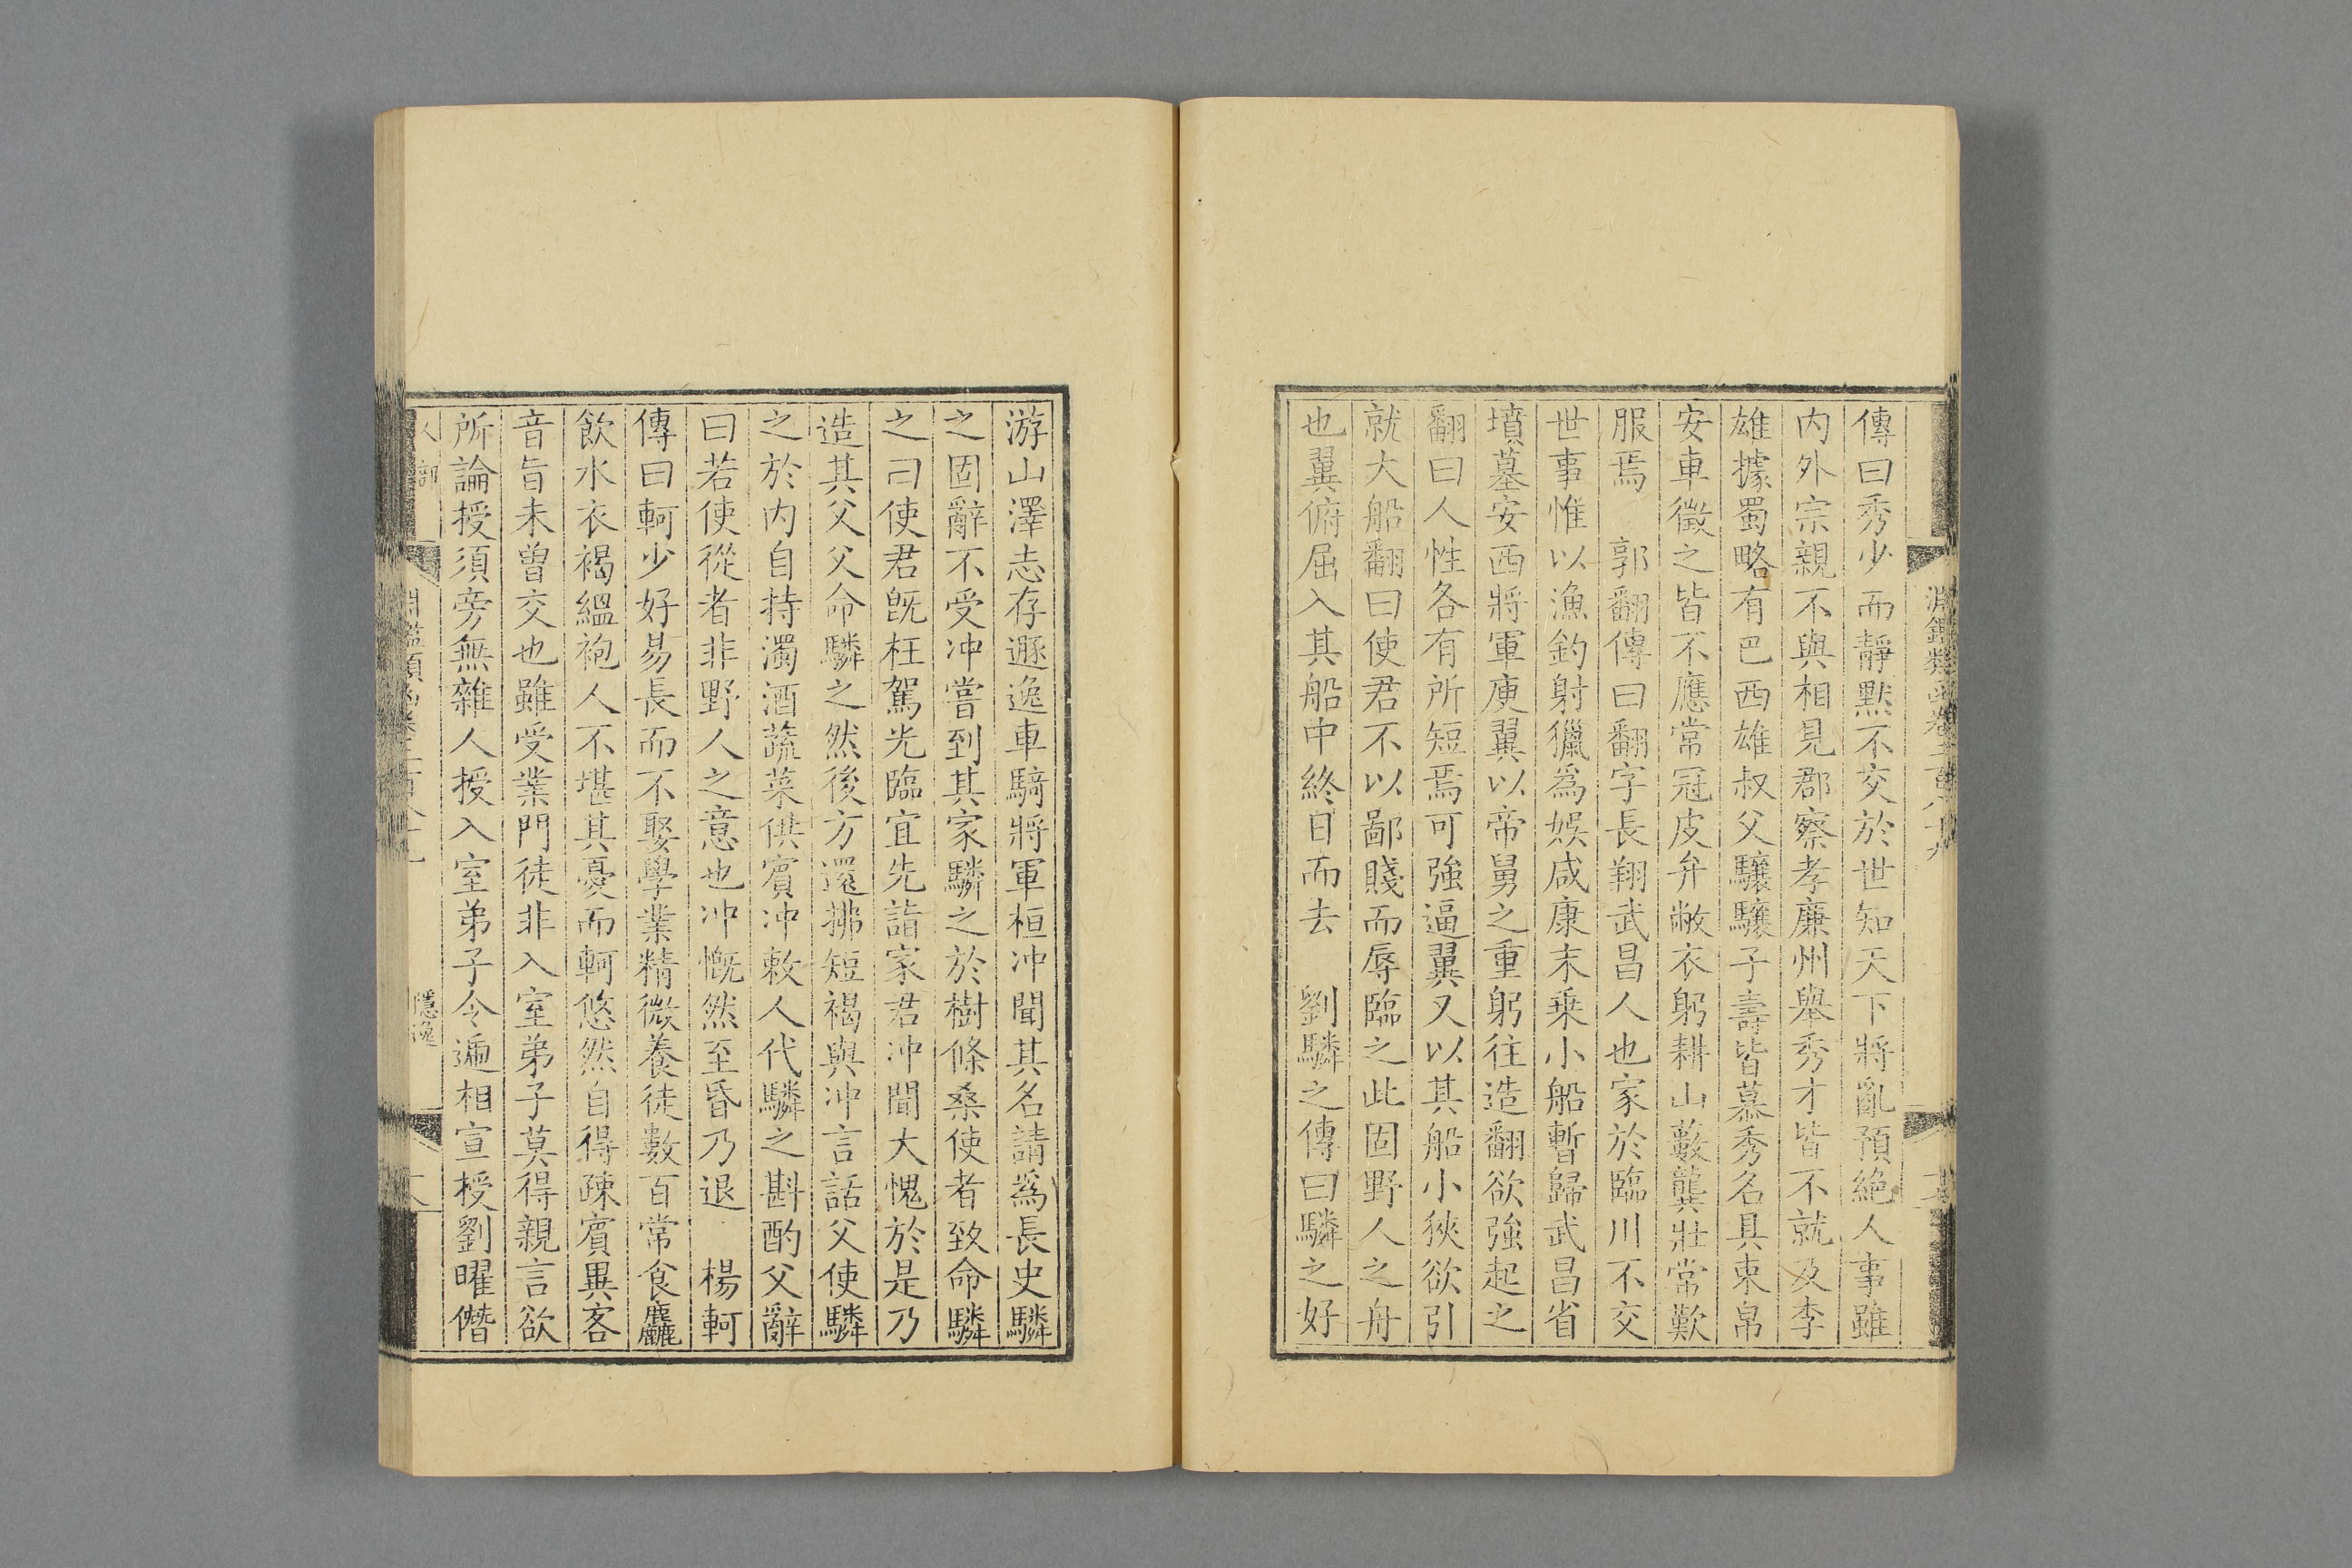 傳曰秀少而靜黙不交於世知天下將亂預絶人事雖
内外宗親不與相見郡察孝廉州舉秀才皆不就及李
雄據蜀略有巴西雄叔父驤驤子壽皆慕秀名具束帛
安車徵之皆不應常冠皮弁敝衣躬耕山藪龔壯常歎
服焉　郭翻傳曰翻字長翔武昌人也家於臨川不交
世事惟以漁釣射獵爲娯咸康末乗小船暫歸武昌省
墳墓安西將軍庾翼以帝舅之重躬往造翻欲強起之
翻曰人性各有所短焉可強逼翼又以其船小狹欲引
就大船翻曰使君不以鄙賤而辱臨之此固野人之舟
也翼俯屈入其船中終日而去　劉驎之傳曰驎之好
游山澤志存遯逸車騎將軍桓冲聞其名請爲長史驎
之固辭不受冲嘗到其家驎之於樹條桑使者致命驎
之曰使君旣枉駕光臨宜先詣家君冲聞大愧於是乃
造其父父命驎之然後方還拂短褐與冲言話父使驎
之於内自持濁酒蔬菜供賓冲敕人代驎之斟酌父辭
曰若使從者非野人之意也冲慨然至昏乃退　楊軻
傳曰軻少好易長而不娶學業精微養徒數百常食麤
飲水衣褐縕袍人不堪其憂而軻悠然自得疎賓異客
音旨未曾交也雖受業門徒非入室弟子莫得親言欲
所論授須旁無雜人授入室弟子令遞相宣授劉曜僭
隱逸